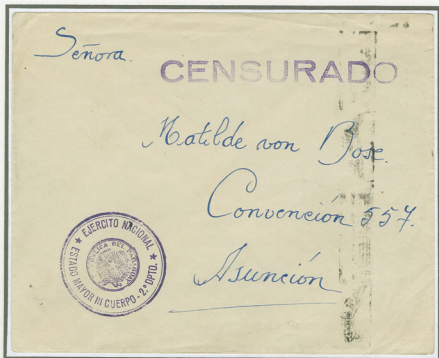 Señora.
CENSURADO
Matilde von Bose
Convención 557.
Asunción
★ EJERCITO NACIONAL ★
ESTADO MAYOR III CUERPO - 2º DPTO.
REPUBLICA DEL PARAGUAY